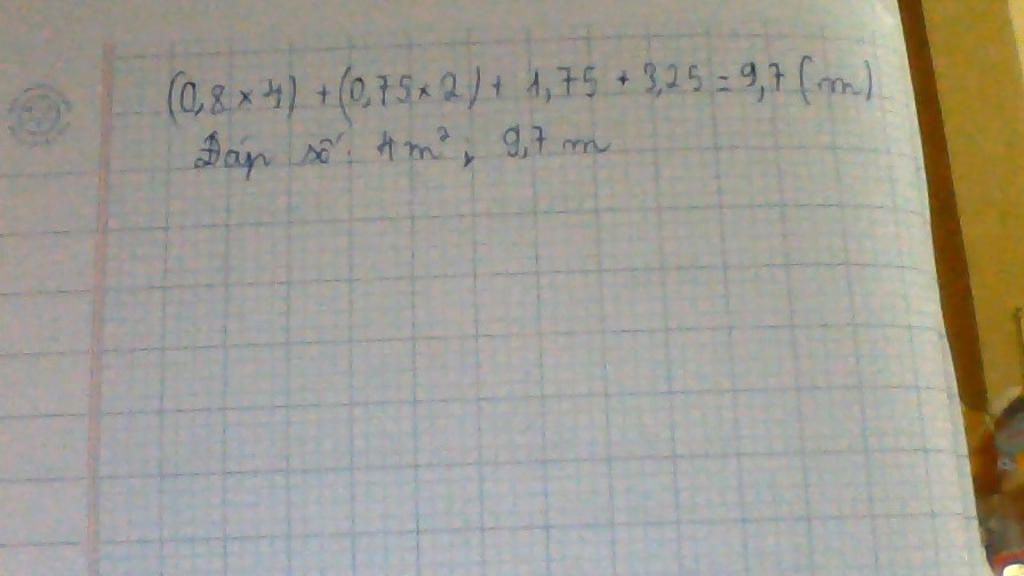 (0,8 × 4) + (0,75 × 2) + 1,75 + 3,25 = 9,7 (m)
Đáp số: 4m², 9,7 m